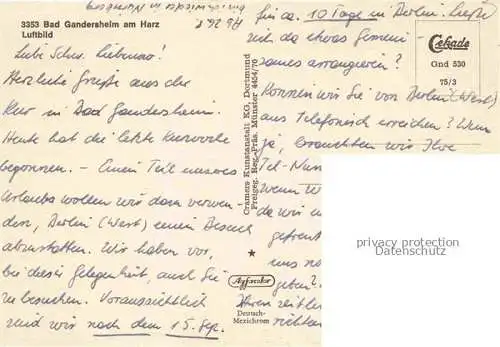 3353 Bad Gandersheim am Harz
Luftbild
Liebe Schw. Liebenau!
Herzliche Grüße aus der
Kur in Bad Gandersheim.
Heute hat die letzte Kurwoche
begonnen. – Einen Teil unseres
Urlaubs wollen wir dazu verwen-
den, Berlin (West) einen Besuch
abzustatten. Wir haben vor,
bei dieser Gelegenheit, auch Sie
zu besuchen. Voraussichtlich
sind wir nach dem 15. Sep.
für ca. 10 Tage in Berlin. Ließe
sich da etwas Gemein-
sames arrangieren?
Können wir Sie von Berlin (West)
aus telefonisch erreichen? Wenn
ja, brauchten wir Ihre
Tel-Num
wenn W
da wir
gefreut
uns na
geben?
Ihren zeitler
richten
Cramers Kunstanstalt KG, Dortmund
Freigeg. Reg.-Präs. Münster 4454/70
Agfacolor
Deutsch-
Mezichrom
Cekade
Gnd 530
75/3
privacy protection
Datenschutz